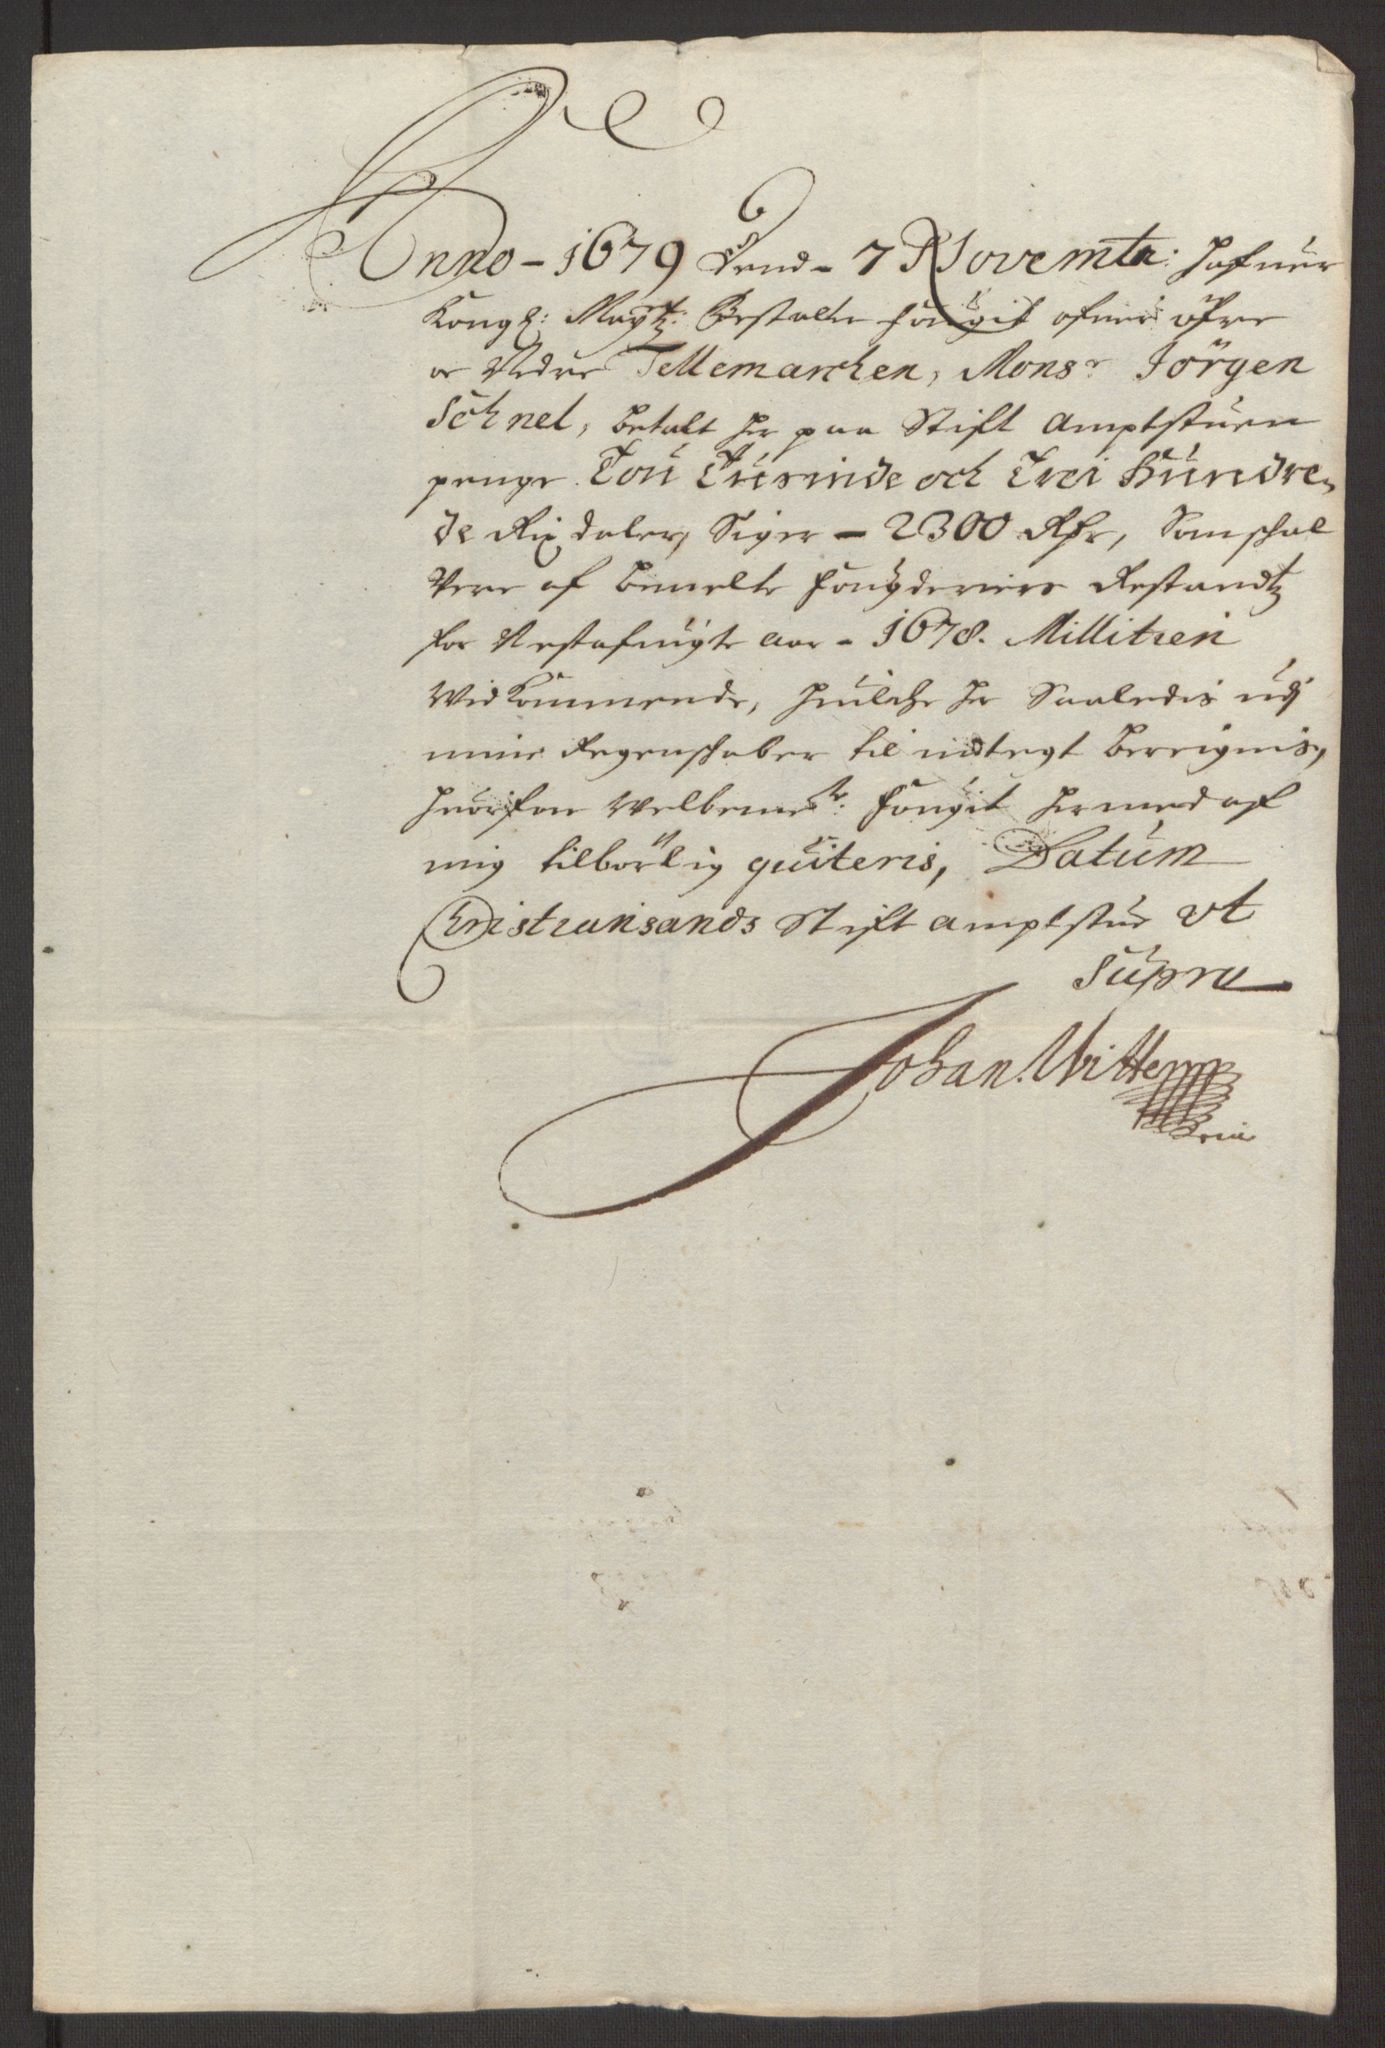 Anno - 1679 Dend - 7 Novembr: hafuer
Kongl: Mayts: Bestalte fougit ofuer öfre
oc Nedre Tellemarchen, Monsr Jörgen
Schnel, betalt her paa Stift amptstuen
penge Tou Tusinde och Trei Hundre-
de Rixdaler, Siger - 2300 Rdr, Som schal
Vere af bemelte fougderiers Restandtz
for Nestafuigte aar - 1678. Militien
Vedkommende, huilche her Saaledis udj
mine Regenschaber til indtegt bereignis,
huorfor Welbemte: fougit hermed af
mig tilbörlig quiteris, Datum
Christiansands Stift amptstue vt
Supra
Johan Wittem